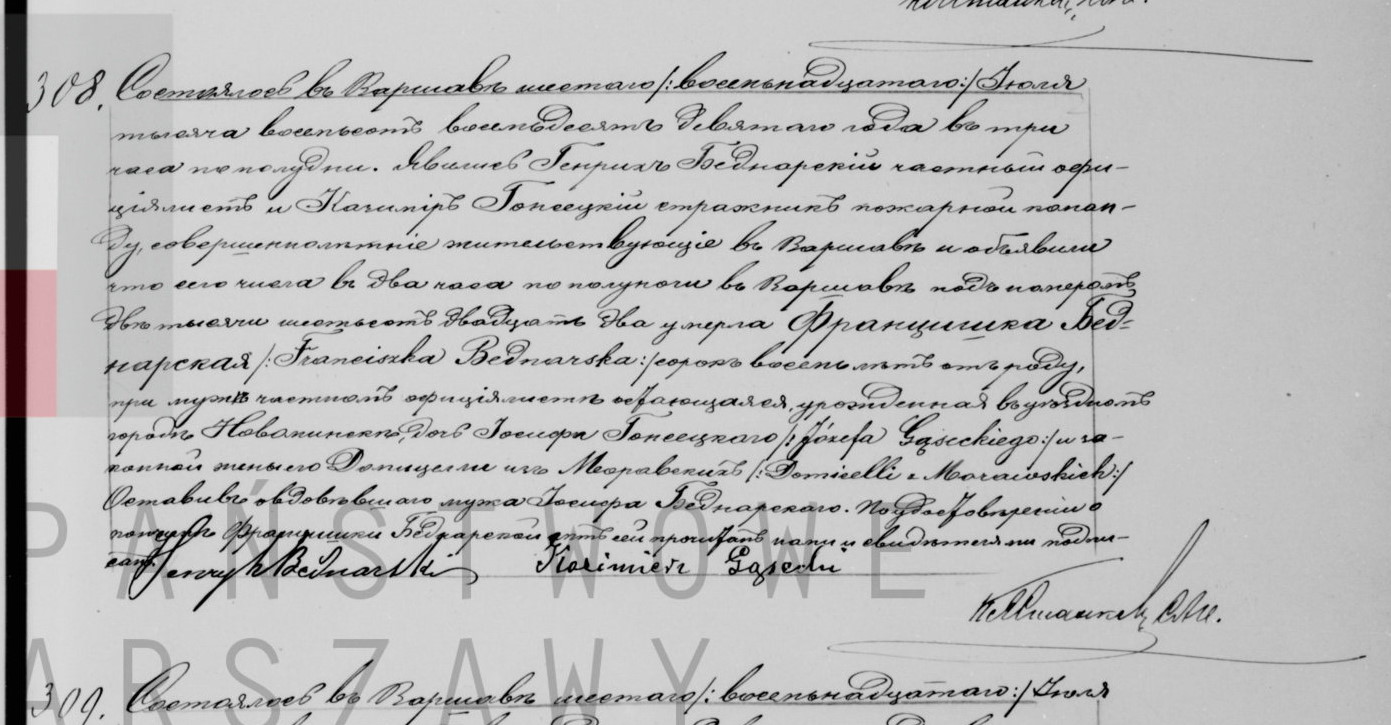 308. Состоялось въ Варшавѣ шестаго /: восемьнадцатаго :/ Іюля
тысяча восемьсотъ восемьдесятъ девятаго года въ три
часа по полудни. Явились Генрихъ Беднарскій частный офи-
ціялистъ и Казиміръ Гонсецкій стражникъ пожарной коман-
ды, совершеннолѣтніе жительствующіе въ Варшавѣ и объявили
что сего числа въ два часа по полуночи въ Варшавѣ подъ номеромъ
двѣ тысячи шестьсотъ двадцать два умерла Францишка Бед=
нарская /: Franciszka Bednarska :/ сорокъ восемь лѣтъ отъ роду,
при мужѣ частномъ офиціялистѣ остающаяся, урожденная въ уѣздномъ
городѣ дочь Іосифа Гонсецкаго /: Józefa Gąseckiego :/ и за-
конной жены его Доницели изъ Моравскихъ /: Domicelli z Morawskich :/
Оставивъ овдовѣвшаго мужа Іосифа Беднарскаго. По удостовѣреніи о
кончинѣ Францишки Беднарской актъ сей прочитанъ нами и свидѣтелями подпи-
санъ. Henryk Bednarski Kazimierz Gąsecki
PAŃSTWOWE
ARSZAWY
309. Состоялось въ Варшавѣ шестаго /: восемьнадцатаго :/ Іюля